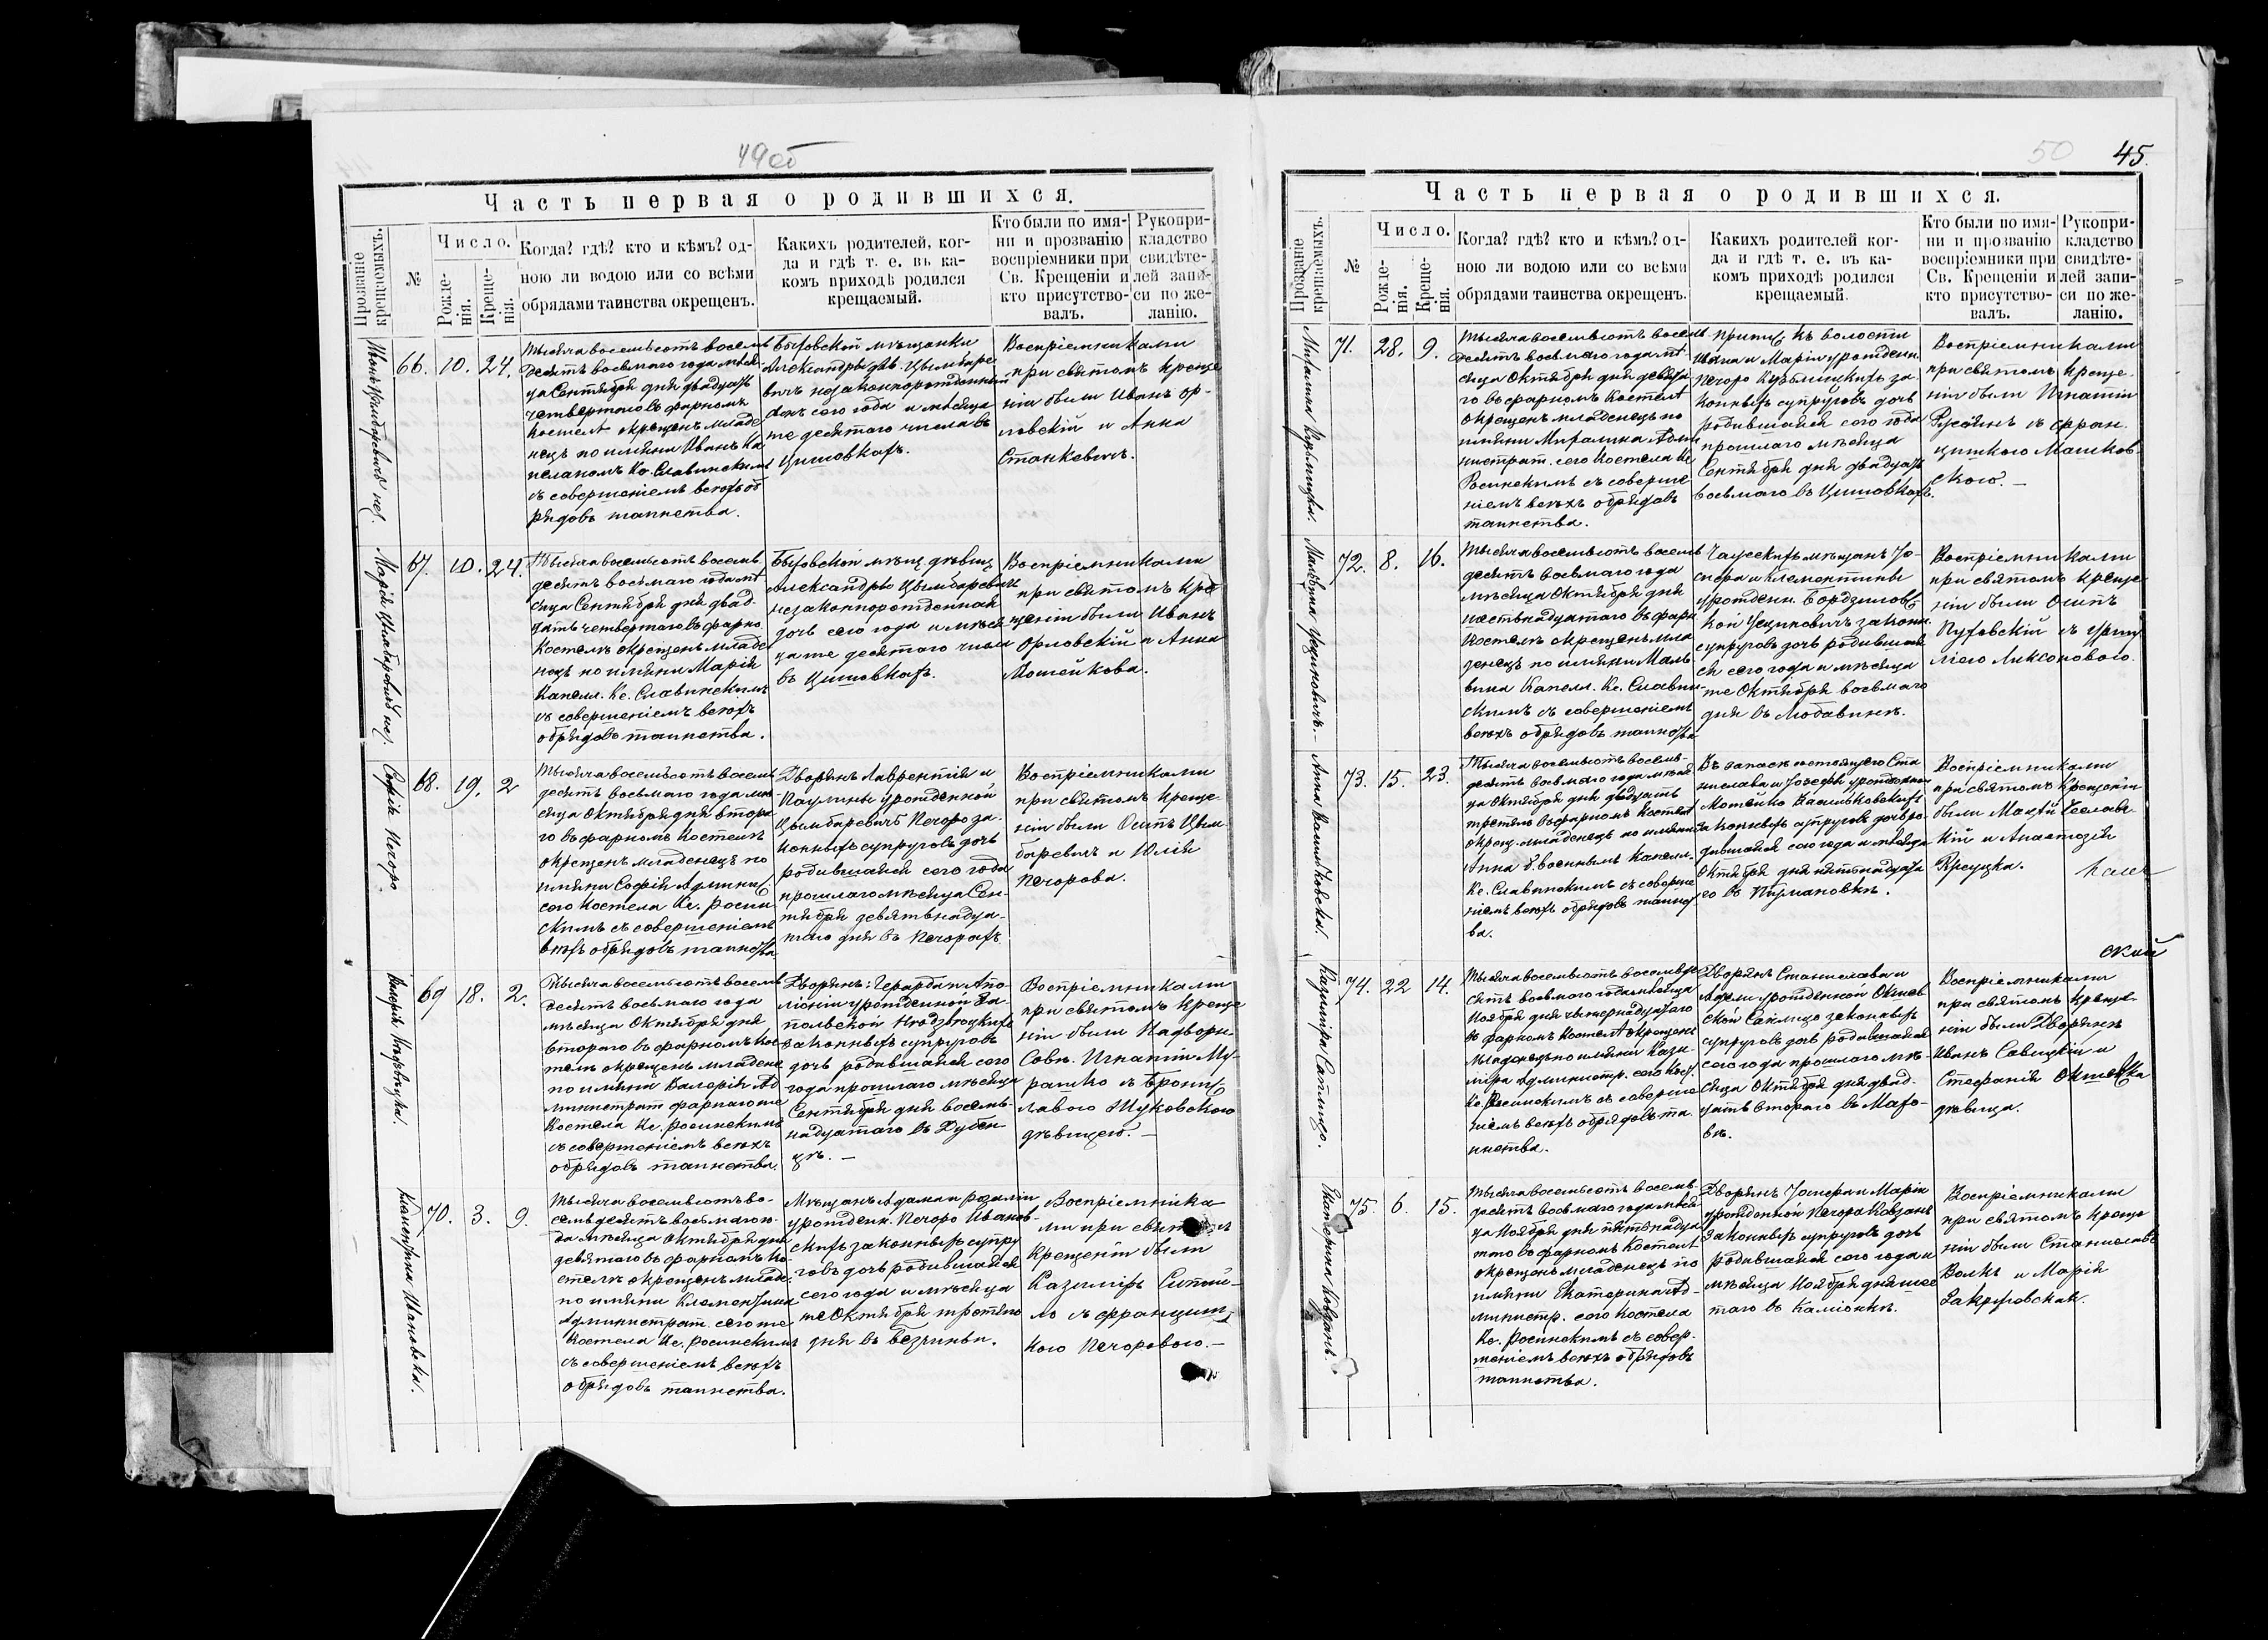 49об
Часть первая о родившихся.
Прозваніе крещаемыхъ.
№
Число.
Рожде-
нія.
Креще-
нія.
Когда? гдѣ? кто и кѣмъ? од-
ною ли водою или со всѣми
обрядами таинства окрещенъ.
Какихъ родителей, ког-
да и гдѣ т. е. въ ка-
комъ приходѣ родился
крещаемый.
Кто были по имя-
ни и прозванію
воспріемники при
Св. Крещеніи и
кто присутство-
валъ.
Рукопри-
кладство
свидѣте-
лей запи-
си по же-
ланію.
66. 10. 24.
Тысяча восемьсотъ восемь
десятъ восьмаго года мѣся-
ца Сентября дня двадцать
четвертаго въ фарномъ
Костелѣ окрещенъ младе
нецъ по имяни Иванъ Ка
пеланомъ Кс. Славинскимъ
съ совершеніемъ всѣхъ об
рядовъ таинства.
Быховской мѣщанки
Александры дѣв. Цымбаре
вичъ незаконнорожденный
сынъ сего года и мѣсяца
же десятаго числа въ
Цишовкахъ.
Воспріемниками
при святомъ креще
ніи были Иванъ Ор-
ловскій и Анна
Станкевичъ.
67. 10. 24.
Марія Цымбаревичъ нез.
Тысяча восемьсотъ восемь
десятъ восьмаго года мѣ
сяца Сентября дня двад-
цать четвертаго въ фарно.
Костелѣ окрещенъ младе
нецъ по имяни Марія
Капелл. Кс. Славинскимъ
съ совершеніемъ всѣхъ
обрядовъ таинства.
Быховской мѣщ. дѣвиц.
Александры Цымбаревичъ
незаконнорожденная
дочь сего года и мѣся
ца же десятаго числа
въ Цишовкахъ.
Воспріемниками
при святомъ кре
щеніи были Иванъ
Орловскій и Анна
Мошейкова.
68. 19. 2
Софія Печоро
Тысяча восемьсотъ восемь
десятъ восьмаго года мѣ
сяца Октября дня втора
го въ фарномъ Костелѣ
окрещенъ младенецъ по
имяни Софія Админис.
сего Костела Кс. Росин
скимъ съ совершеніемъ
всѣхъ обрядовъ таинства
Дворянъ Лаврентія и
Паулины урожденной
Цымбаревичъ Печоро за-
конныхъ супруговъ дочь
родившаяся сего года
прошлаго мѣсяца Сен-
тября девятьнадца-
таго дня въ Печорахъ.
Воспріемниками
при святомъ креще
ніи были Осипъ Цым
баревичъ и Юлія
Печорова.
69 18. 2.
Тысяча восемьсотъ восемь
десятъ восьмаго года
мѣсяца Октября дня
втораго въ фарномъ Кос
телѣ окрещенъ младене
по имяни Валерія Ад
министрат. фарнаго же
Костела Кс. Росинскимъ
съ совершеніемъ всѣхъ
обрядовъ таинства.
Дворянъ: Герарда и Апо
лоніи урожденной За-
польской
законныхъ супруговъ
дочь родившаяся сего
года прошлаго мѣсяца
Сентября дня восемь-
надцатаго въ Дубен
цѣ.
Воспріемниками
при святомъ креще
ніи были Надворн.
Совѣ. Игнатій Му-
рашко съ Бронис
лавою Жуковскою
дѣвицею.
70. 3. 9.
Клементина Ивановска.
Тысяча восемьсотъ во-
семьдесятъ восьмаго го-
да мѣсяца Октября дня
девятаго въ фарномъ Ко-
стелѣ окрещенъ младе.
по имяни Клементина
Администрат. сего же
Костела Кс. Росинскимъ
съ совершеніемъ всѣхъ
обрядовъ таинства.
Мѣщанъ Адама и Розаліи
урожденн. Печоро Иванов-
скихъ законныхъ супру
говъ дочь родившаяся
сего года и мѣсяца
же Октября третяго
дня въ Безчиньи.
Воспріемника-
ми при святомъ
крещеніи были
Казиміръ
съ Францишъ
кою Печоровою.
50 45.
Часть первая о родившихся.
Прозваніе крещаемыхъ.
№
Число.
Рожде-
нія.
Креще-
нія.
Когда? гдѣ? кто и кѣмъ? од-
ною ли водою или со всѣми
обрядами таинства окрещенъ.
Какихъ родителей ког-
да и гдѣ т. е. въ ка-
комъ приходѣ родился
крещаемый.
Кто были по имя-
ни и прозванію
воспріемники при
Св. Крещеніи и
кто присутство-
валъ.
Рукопри-
кладство
свидѣте-
лей запи-
си по же-
ланію.
71. 28. 9.
Тысяча восемьсотъ восемь
десятъ восьмаго года мѣ
сяца Октября дня девята
го въ фарномъ Костелѣ
окрещенъ младенецъ по
имяни Михалина Адми
нистрат. сего Костела Кс
Росинскимъ съ соверше
ніемъ всѣхъ обрядовъ
таинства.
Припис. къ волости
Ивана и Маріи урожденн.
Печоро за-
конныхъ супруговъ дочь
родившаяся сего года
прошлаго мѣсяца
Сентября дня двадцать
восьмаго въ Цишовкахъ.
Воспріемниками
при святомъ креще-
ніи были Игнатій
съ Фран-
цишкою Машков-
скою.
72. 8. 16.
Тысяча восемьсотъ восемь
десятъ восьмаго года
мѣсяца Октября дня
шестнадцатаго въ фарн
Костелѣ окрещенъ мла
денецъ по имяни Маль
вина Капелл. Кс. Славин
скимъ съ совершеніемъ
всѣхъ обрядовъ таинства
Чаусскихъ мѣщанъ Іо-
сифа и Клементины
урожденн. Бордзиловс
кой законн.
супруговъ дочь родивша
ся сего года и мѣсяца
же Октября восьмаго
дня въ Любавинѣ.
Воспріемниками
при святомъ креще
ніи были Осипъ
Пуховскій съ Урсу
лею
73. 15. 23.
Тысяча восемьсотъ восемь-
десятъ восьмаго года мѣся
ца Октября дня двадцать
третяго въ фарномъ Костелѣ
окрещ. младенецъ по имяни
Анна б. военнымъ Капелл.
Кс. Славинскимъ съ соверше
ніемъ всѣхъ обрядовъ таинст
ва.
Въ запасѣ состоящего Ста
нислава и Іозефы урожденн.
Мотейко Васильковскихъ
законныхъ супруговъ дочь ро-
дившаяся сего года и мѣсяца
Октября дня пятнадцата
го въ
Воспріемниками
при святомъ Крещеніи
были
кій и Анастазія
74. 22 14.
Казиміра Сапѣцо.
Тысяча восемьсотъ восемьде
сятъ восьмаго года мѣсяца
Ноября дня четырнадцатаго
въ фарномъ Костелѣ окрещенъ
младенецъ по имяни Кази-
міра Администр. сего Кост.
Кс. Росинскимъ съ соверше
ніемъ всѣхъ обрядовъ та-
инства.
Дворянъ Станислава и
Адели урожденной
законныхъ
супруговъ дочь родившаяся
сего года прошлаго мѣ-
сяца Октября дня двад-
цать втораго въ Махо-
вѣ.
ский
Воспріемниками
при святомъ креще-
ніи были Дворянъ
Иванъ Савицкій и
Стефанія
дѣвица.
75. 6. 15.
Екатерина Ковзанъ.
Тысяча восемьсотъ восемь-
десятъ восьмаго года мѣся
ца Ноября дня пятьнадца
таго въ фарномъ Костелѣ
окрещенъ младенецъ по
имяни Екатерина Ад-
министр. сего Костела
Кс. Росинскимъ съ совер-
шеніемъ всѣхъ обрядовъ
таинства.
Дворянъ Іосифа и Маріи
урожденной Печоро Ковзанъ
законныхъ супруговъ дочь
родившаяся сего года и
мѣсяца Ноября дня шес
таго въ Каміонкѣ.
Воспріемниками
при святомъ креще
ніи были Станиславъ
Волкъ и Марія
Закржевская.